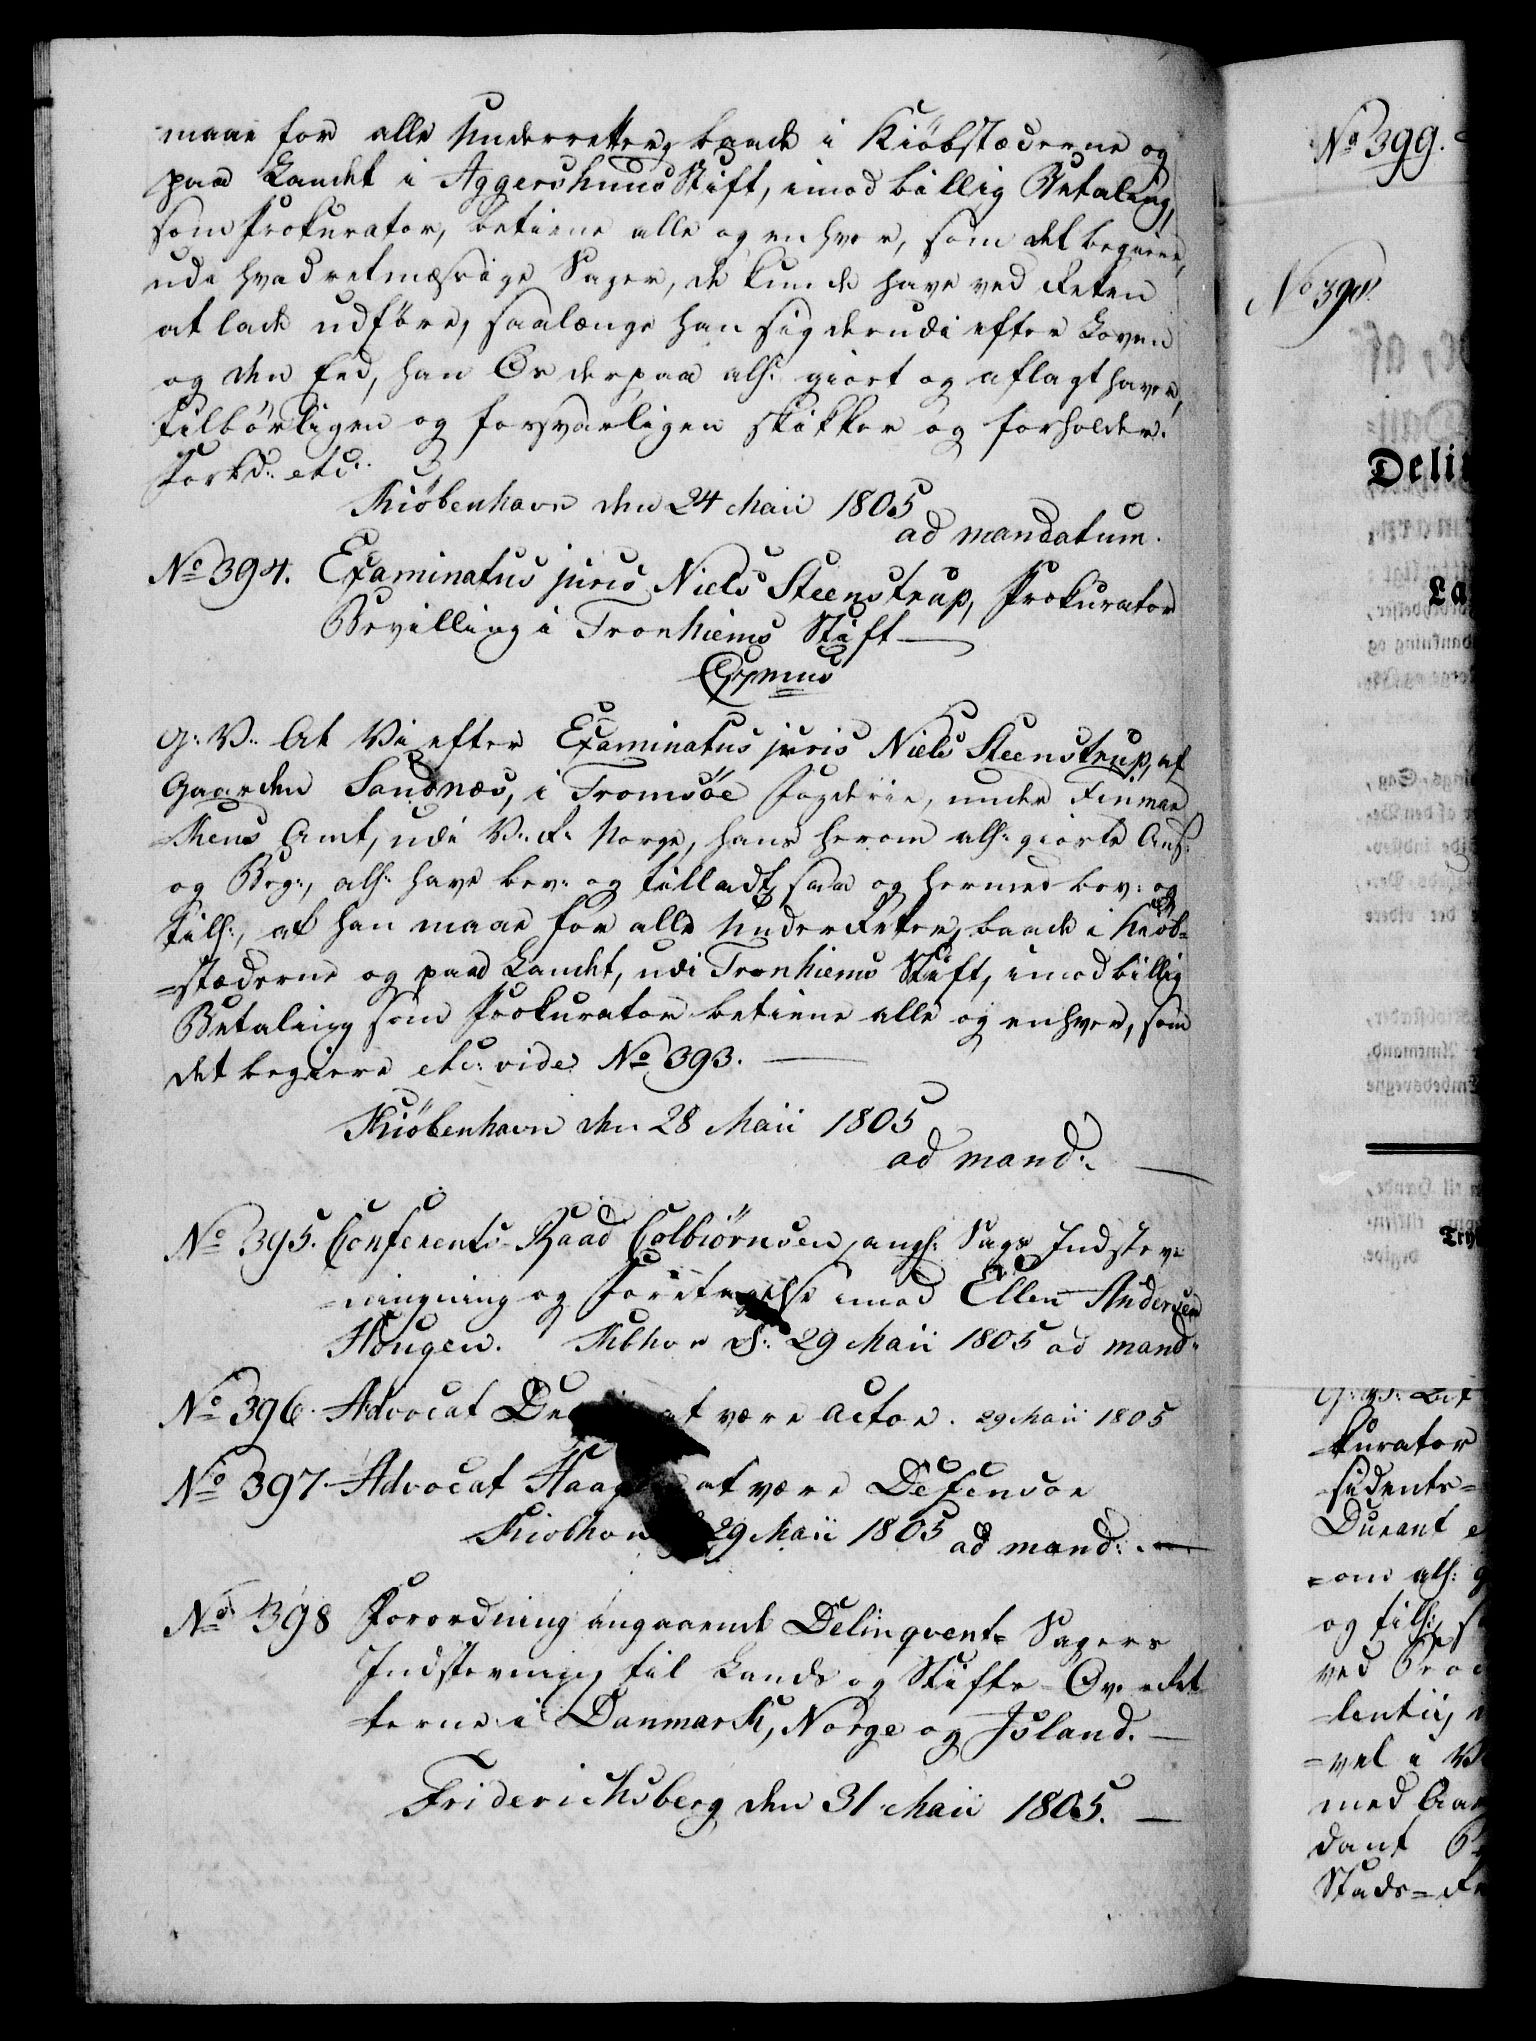 maae for alle Underretter, baade i Kiöbstæderne og
paa Landet i Aggershuus Stift, imod billig Betaling,
som Prokurator, betiene alle og enhver, som det begiere,
udi hvad retmæssige Sager, de kunde have ved Retten
at lade udföre, saalænge han sig derudi efter Loven
og den Eed, han Os derpaa alh: giort og aflagt haver,
tilbörligen og forsvarligen skikker og forholder.
Forbd: etc:
Kiöbenhavn den 24 Maii 1805
ad mandatum.
No 394. Examinatus juris Niels Steenstrup, Prokurator
Bevilling i Tronhiems Stift
C 7mus
G: V: At Vi efter Examinatus juris Niels Steenstrup, af
Gaarden Sandnæs, i Tromsöe Fogderie, under Finmar
-kens Amt, udi V: R: Norge, hans herom alh: giorte Ans:
og Beg:, alh: have bev: og tilladt, saa og hermed bev: og
till:, at han maae for alle UnderRetter, baade i Kiöb-
=stæderne og paa Landet, udi Tronhiems Stift, imod billig
Betaling som Prokurator betiene alle og enhver, som
det begiere etc: vide No 393.
Kiöbenhavn den 28 Maii 1805
ad mand:
No 395. Conferents-Raad Colbiörnsen, angl: Sags Indstev
-ningning og Foretagelse imod Ellen Andersen
Hougen. Kbhvn d: 29 Maii 1805 ad mand:
No 396. Advocat at være Actor. 29 Maii 1805
No 397. Advocat at være Defensor
Kiobhvn 29 Maii 1805 ad mand:
No 398 Forordning angaaende Delinqvent= Sagers
Indstevning til Lands og Stifts-Overret
terne i Danmark, Norge og Island.
Friderichsberg den 31 Maii 1805.
No 399.
No 390
Deli
La
G: V: At
kurator
sidents=
Durant
=om alh: g
og till:, s
ved Proc
lentii,
=vel i V
med Aar
dant
Stads=